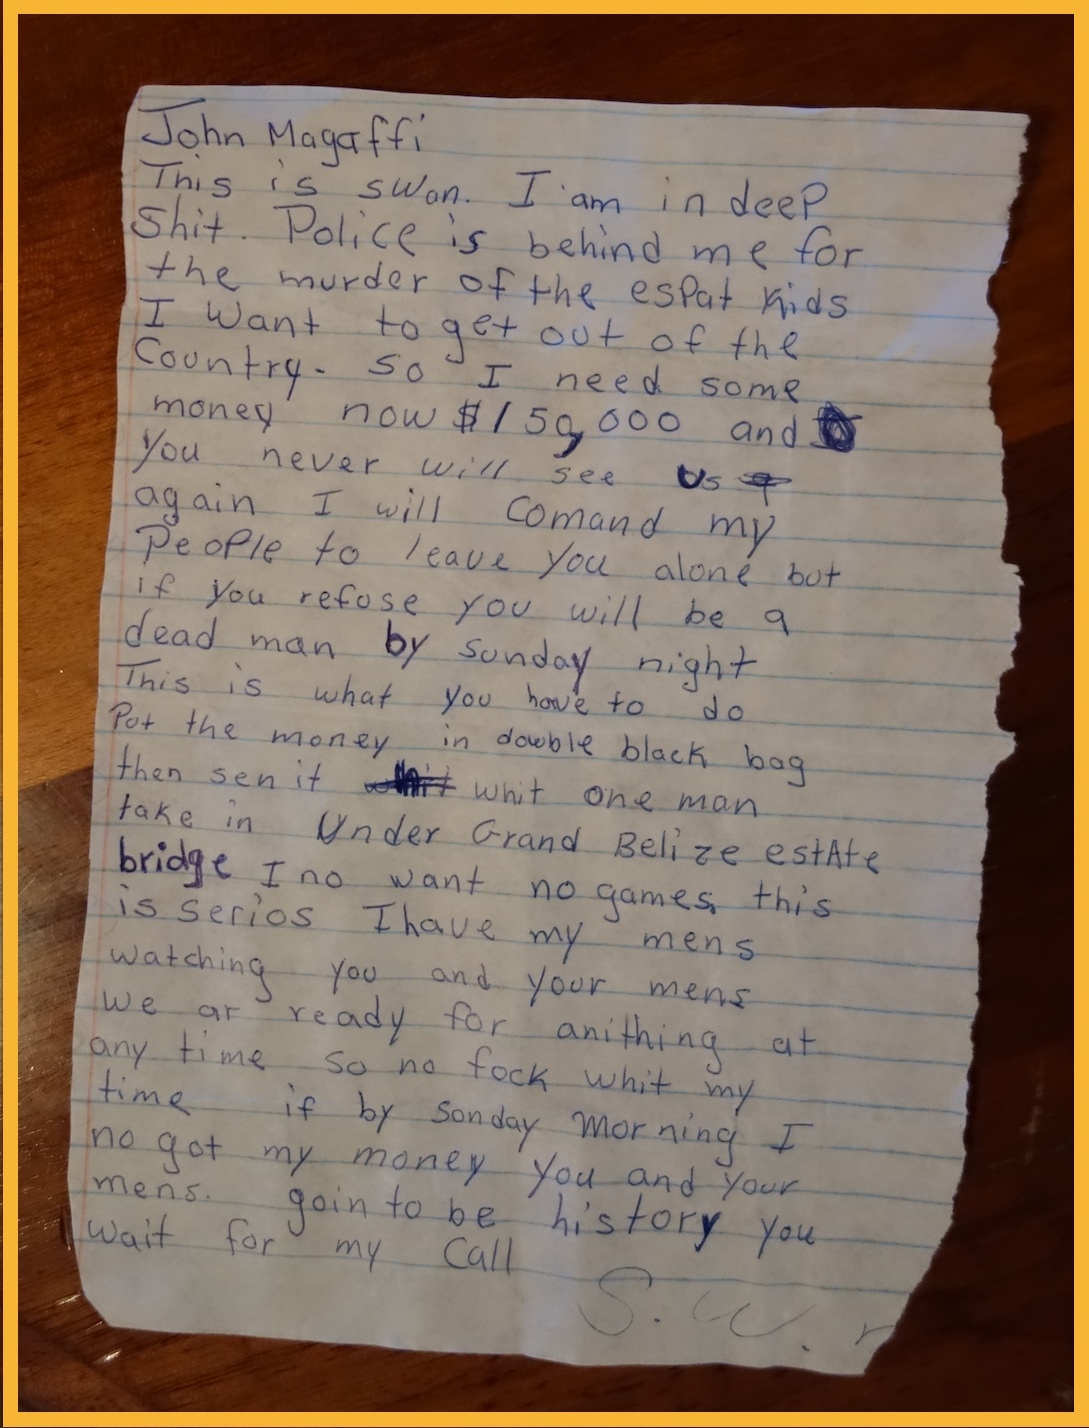 John Magaffi
This is swan. I am in deep
Shit. Police is behind me for
the murder of the espat kids
I want to get out of the
Country. So I need some
money now $150,000 and
you never will see us
again I will Comand my
People to leave you alone but
if you refuse you will be a
dead man by Sunday night
This is what you have to do
Put the money in double black bag
then sen it whit one man
take in Under Grand Belize estAte
bridge I no want no games, this
is serios I have my mens
watching you and your mens
we ar ready for anithing at
any time so no fock whit my
time if by Sonday Morning I
no got my money you and your
mens. goin to be history you
wait for my Call
S. W.